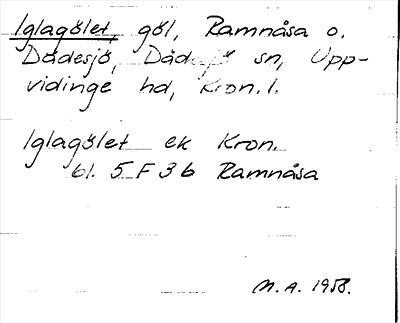 Iglagölet, göl, Ramnåsa o.
Dädesjö, Dädesjö sn, Upp-
vidinge hd, Kron. l.
Iglagölet ek Kron.
bl. 5 F 3 b Ramnåsa
M. A. 1958.